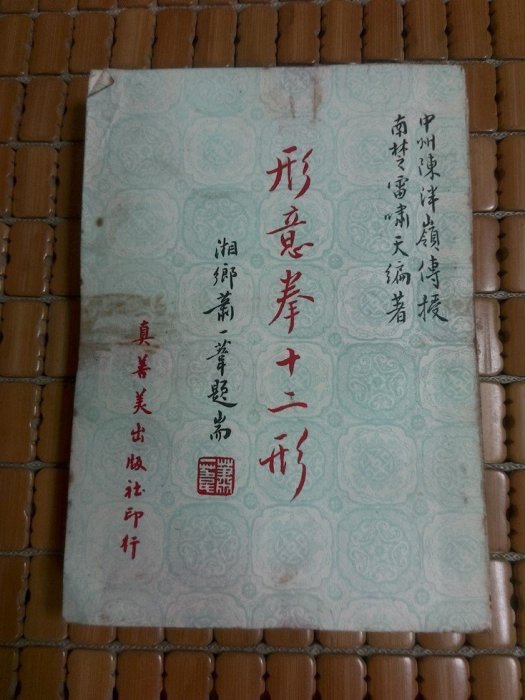 中州陳泮嶺傳授
南楚雷嘯天編著
形意拳十二形
湘鄉蕭一葦題耑
蕭一葦
真善美出版社印行